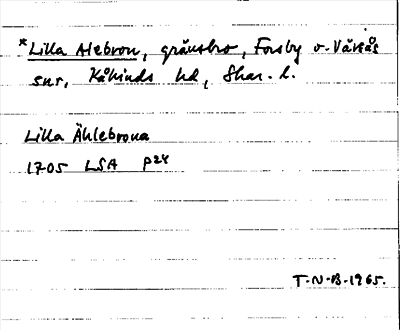 *Lilla Alebron, gränsbro, Forsby o. Våmås
snr, Kåkinds hd, Skar. l.
Lilla Åhlebrona
1705 LSA P24
T.N.B. 1965.